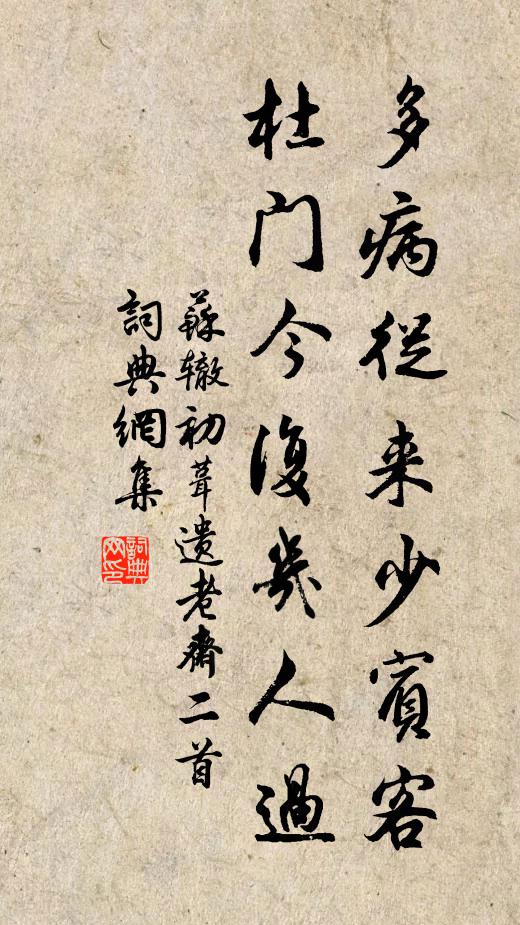 多病從来少賓客
杜門今復幾人過
蘇辙初葺遺老齋二首
詞典網集
詞典网印